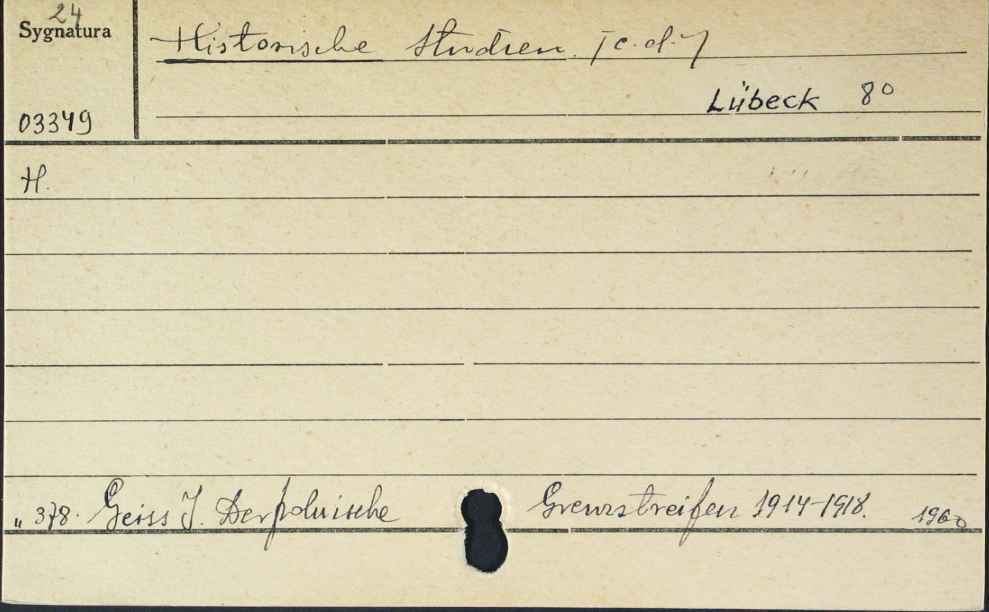 24
Sygnatura
Historische Studien. [c.d.]
Lübeck 8°
03349
H.
„ 378. Geiss J. Der polnische Grenzstreifen 1914-1918. 1960